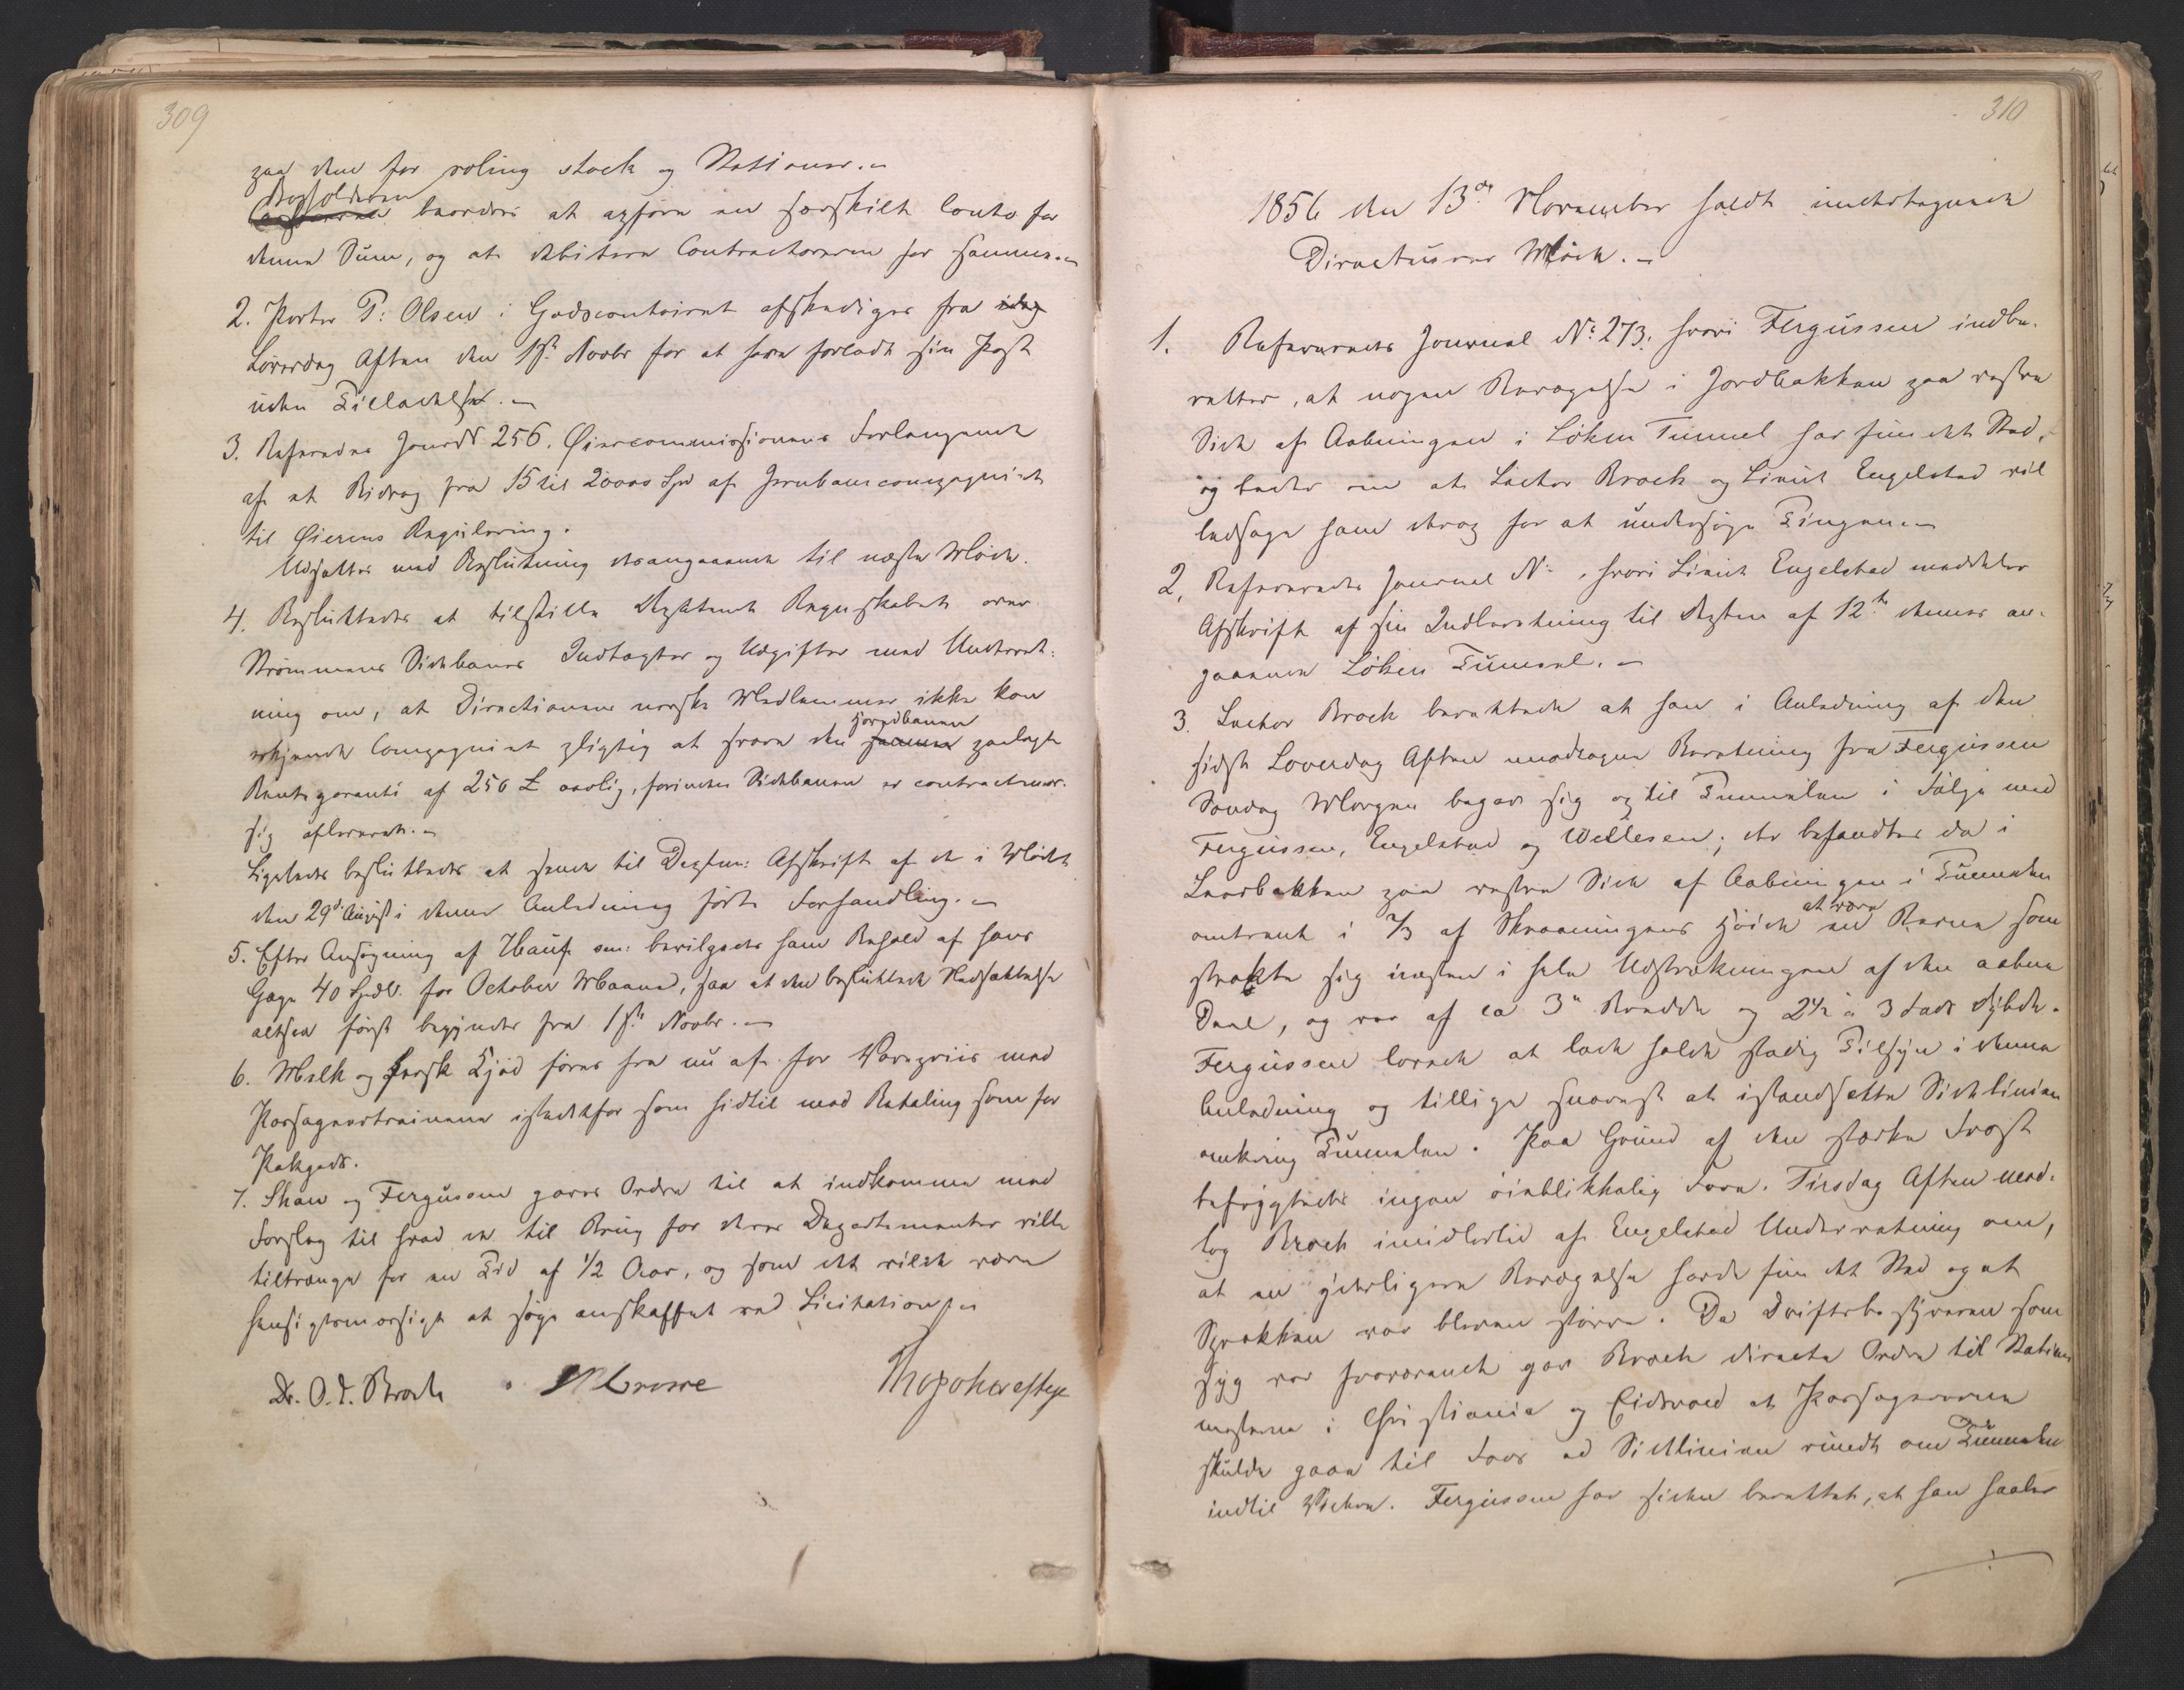 309
paa den for roling stock og Stationer.
Bogholderen
beordres at opføre en særskilt Conto for
denne Sum, og at debitere Contractorerne for samme.
2. Porter P: Olsen i Godscontoiret afskediges fra idag
Løverdag Aften den 1ste Novbr for at have forladt sin Post
uden Tilladelse.
3. Refererdes Jour№ 256. Øierencommissionens Forlangende
af et Bidrag fra 15 til 20000 Spd af Jernbanecompagniet
til Øierens Regulering.
Udsattes med Beslutning desangaaende til næste Møde.
4. Besluttedes at tilstille Deptmt Regnskabet over
Strømmens Sidebanes Indtægter og Udgifter med Underret:
ning om, at Directionens norske Medlemmer ikke kan
Hovedbanen
erkjende Compagniet pligtig at svare den paalagte
Rentegaranti af 250 £ aarlig, forinden Sidebanen er contractmæs-
sig afleveret.
Ligeledes besluttedes at sende til Deptm: Afskrift af de i Mødet
den 29de August i denne Anledning førte Forhandling.
5. Efter Ansøgning af Hauf sen: bevilgedes ham Behold af hans
Gage 40 Spdlr. for October Maaned, saa at den besluttede Nedsættelse
altsaa først begynder fra 1ste Novbr.
6. Melk og fersk Kjød føres fra nu af for Varepriis med
Passagertrainene istedetfor som hidtil med Betaling som for
Pakgods.
7. Shaw og Fergusson gaves Ordre til at indkomme med
Forslag til hvad der til Brug for deres Departementer ville
tiltrænges for en Tid af 1/2 Aar, og som det vilde være
hensigtsmæssigt at søge anskaffet ved Licitation.
Dr. O. J. Broch
310
1856 den 13de November holdt undertegnede
Directeurer Møde.
1. Refereredes Journal №: 273. hvori Fergusson indbe-
retter, at nogen Bevægelse i Jordbakken paa vestre
Side af Aabningen i Løken Tunnel har fundet Sted,
og beder om at Lector Broch og Lieut Engelstad vil
ledsage ham derop for at undersøge Tingen.
2, Refereredes Journal №: , hvori Lieut Engelstad meddeler
Afskrift af sin Indberetning til Deptm af 12te dennes an-
gaaende Løken Tunnel.
3. Lector Broch berettede at han i Anledning af den
sidste Løverdag Aften modtagne Beretning fra Fergusson
Søndag Morgen begav sig op til Tunnelen i Følge med
Fergusson, Engelstad og Willesen; der befandtes da i
Leerbakken paa vestre Side af Aabningen i Tunnelen
at være
omtrent i 2/3 af Skraaningens Høide en Revne som
strakte sig næsten i hele Udstrækningen af den aabne
Deel, og var af ca 3" Bredde og 2 1/2 à 3 Fods Dybde.
Fergusson lovede at lade holde stadig Tilsyn i denne
Anledning og tillige snarest at istandsætte Sidelinien
omkring Tunnelen. Paa Grund af den stærke Frost
befrygtedes ingen øieblikkelig Fare. Tirsdag Aften mod-
tog Broch imidlertid af Engelstad Underretning om,
at en yderligere Bevægelse havde fundet Sted og at
Sprækken var bleven større. Da Driftsbestyreren som
syg var fraværende gav Broch directe Ordre til Stations
mesterne i Christiania og Eidsvold at Passagererne
skulde gaae til Fods ad Sidelinien rundt om Tunnelen
indtil Videre. Fergusson har siden berettet, at han haaber